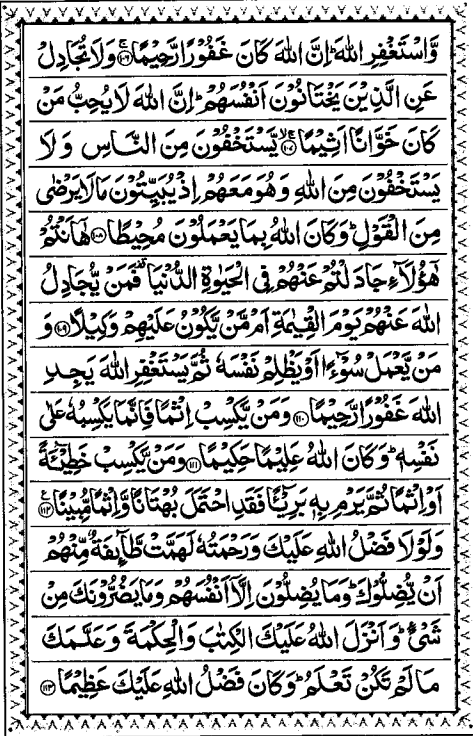 وَّاسْتَغْفِرِ اللّٰهَ ؕ اِنَّ اللّٰهَ كَانَ غَفُوْرًا رَّحِيْمًا ۚ﴿۱۰۶﴾ وَلَا تُجَادِلْ
عَنِ الَّذِيْنَ يَخْتَانُوْنَ اَنْفُسَهُمْ ؕ اِنَّ اللّٰهَ لَا يُحِبُّ مَنْ
كَانَ خَوَّانًا اَثِيْمًا ۚۙ﴿۱۰۷﴾ يَّسْتَخْفُوْنَ مِنَ النَّاسِ وَلَا
يَسْتَخْفُوْنَ مِنَ اللّٰهِ وَهُوَ مَعَهُمْ اِذْ يُبَيِّتُوْنَ مَا لَا يَرْضٰى
مِنَ الْقَوْلِ ؕ وَكَانَ اللّٰهُ بِمَا يَعْمَلُوْنَ مُحِيْطًا ﴿۱۰۸﴾ هٰۤاَنْتُمْ
هٰۤؤُلَآءِ جَادَلْتُمْ عَنْهُمْ فِى الْحَيٰوةِ الدُّنْيَا ۫ فَمَنْ يُّجَادِلُ
اللّٰهَ عَنْهُمْ يَوْمَ الْقِيٰمَةِ اَمْ مَّنْ يَّكُوْنُ عَلَيْهِمْ وَكِيْلًا ﴿۱۰۹﴾ وَ
مَنْ يَّعْمَلْ سُوْٓءًا اَوْ يَظْلِمْ نَفْسَهٗ ثُمَّ يَسْتَغْفِرِ اللّٰهَ يَجِدِ
اللّٰهَ غَفُوْرًا رَّحِيْمًا ﴿۱۱۰﴾ وَمَنْ يَّكْسِبْ اِثْمًا فَاِنَّمَا يَكْسِبُهٗ عَلٰى
نَفْسِهٖ ؕ وَكَانَ اللّٰهُ عَلِيْمًا حَكِيْمًا ﴿۱۱۱﴾ وَمَنْ يَّكْسِبْ خَطِيْٓـئَةً
اَوْ اِثْمًا ثُمَّ يَرْمِ بِهٖ بَرِيْٓـئًا فَقَدِ احْتَمَلَ بُهْتَانًا وَّاِثْمًا مُّبِيْنًا ﴿۱۱۲﴾ ع
وَلَوْلَا فَضْلُ اللّٰهِ عَلَيْكَ وَرَحْمَتُهٗ لَهَمَّتْ طَّآئِفَةٌ مِّنْهُمْ
اَنْ يُّضِلُّوْكَ ؕ وَمَا يُضِلُّوْنَ اِلَّاۤ اَنْفُسَهُمْ وَمَا يَضُرُّوْنَكَ مِنْ
شَىْءٍ ؕ وَاَنْزَلَ اللّٰهُ عَلَيْكَ الْكِتٰبَ وَالْحِكْمَةَ وَعَلَّمَكَ
مَا لَمْ تَكُنْ تَعْلَمُ ؕ وَكَانَ فَضْلُ اللّٰهِ عَلَيْكَ عَظِيْمًا ﴿۱۱۳﴾